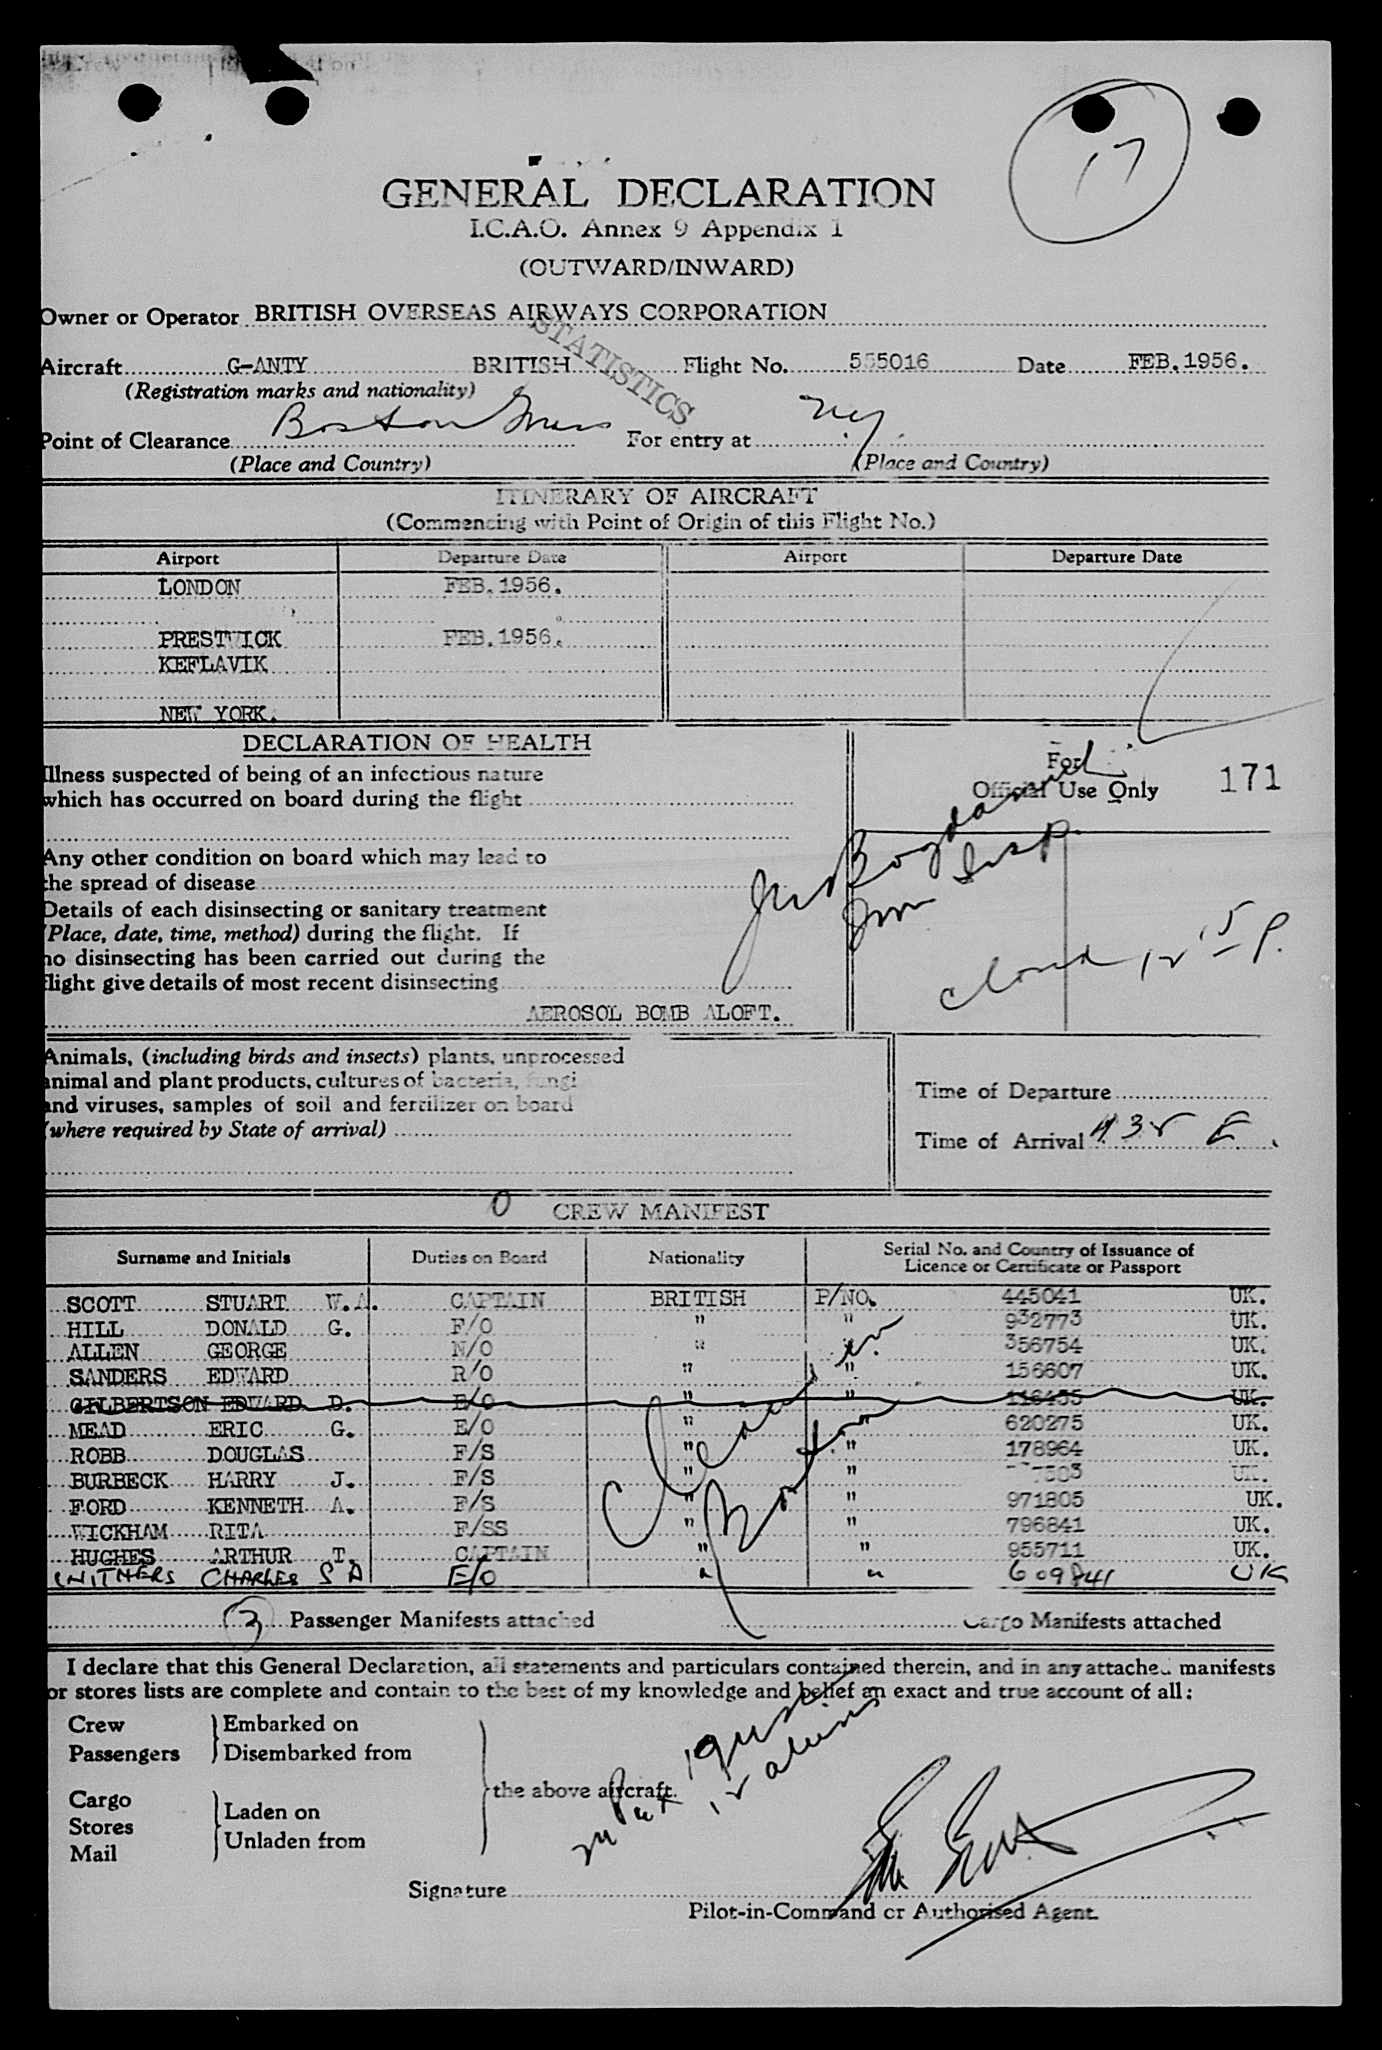 17
GENERAL DECLARATION
I.C.A.O. Annex 9 Appendix 1
(OUTWARD/INWARD)
Owner or Operator BRITISH OVERSEAS AIRWAYS CORPORATION
STATISTICS
Aircraft G-ANTY BRITISH Flight No. 555016 Date FEB.1956.
(Registration marks and nationality)
Point of Clearance Boston Mass For entry at NY
(Place and Country) (Place and Country)
ITINERARY OF AIRCRAFT
(Commencing with Point of Origin of this Flight No.)
Airport Departure Date Airport Departure Date
LONDON FEB.1956.
PRESTWICK FEB.1956.
KEFLAVIK
NEW YORK.
DECLARATION OF HEALTH
Illness suspected of being of an infectious nature
which has occurred on board during the flight
For
Official Use Only 171
Any other condition on board which may lead to
the spread of disease
Details of each disinsecting or sanitary treatment
(Place, date, time, method) during the flight. If
no disinsecting has been carried out during the
flight give details of most recent disinsecting
AEROSOL BOMB ALOFT.
Imm Insp
Animals, (including birds and insects) plants, unprocessed
animal and plant products, cultures of bacteria, fungi
and viruses, samples of soil and fertilizer on board
(where required by State of arrival)
Time of Departure
Time of Arrival
0 CREW MANIFEST
Surname and Initials Duties on Board Nationality Serial No. and Country of Issuance of
Licence or Certificate or Passport
SCOTT STUART W.A. CAPTAIN BRITISH P/NO. 445041 UK.
HILL DONALD G. F/O " " 932773 UK.
ALLEN GEORGE N/O " " 356754 UK.
SANDERS EDWARD R/O " " 156607 UK.
GILBERTSON EDWARD D. E/O " " 116455 UK.
MEAD ERIC G. E/O " 620275 UK.
ROBB DOUGLAS F/S " " 178964 UK.
BURBECK HARRY J. F/S " " UK.
FORD KENNETH A. F/S " " 971805 UK.
WICKHAM RITA F/SS " " 796841 UK.
HUGHES ARTHUR T. CAPTAIN " " 955711 UK.
WITHERS CHARLES S A E/O " " 609841 UK
Boston
Passenger Manifests attached Cargo Manifests attached
I declare that this General Declaration, all statements and particulars contained therein, and in any attached manifests
or stores lists are complete and contain to the best of my knowledge and belief an exact and true account of all:
Crew Embarked on
Passengers Disembarked from
the above aircraft.
Cargo Laden on
Stores
Unladen from
Mail
12 aliens
Signature
Pilot-in-Command or Authorised Agent.